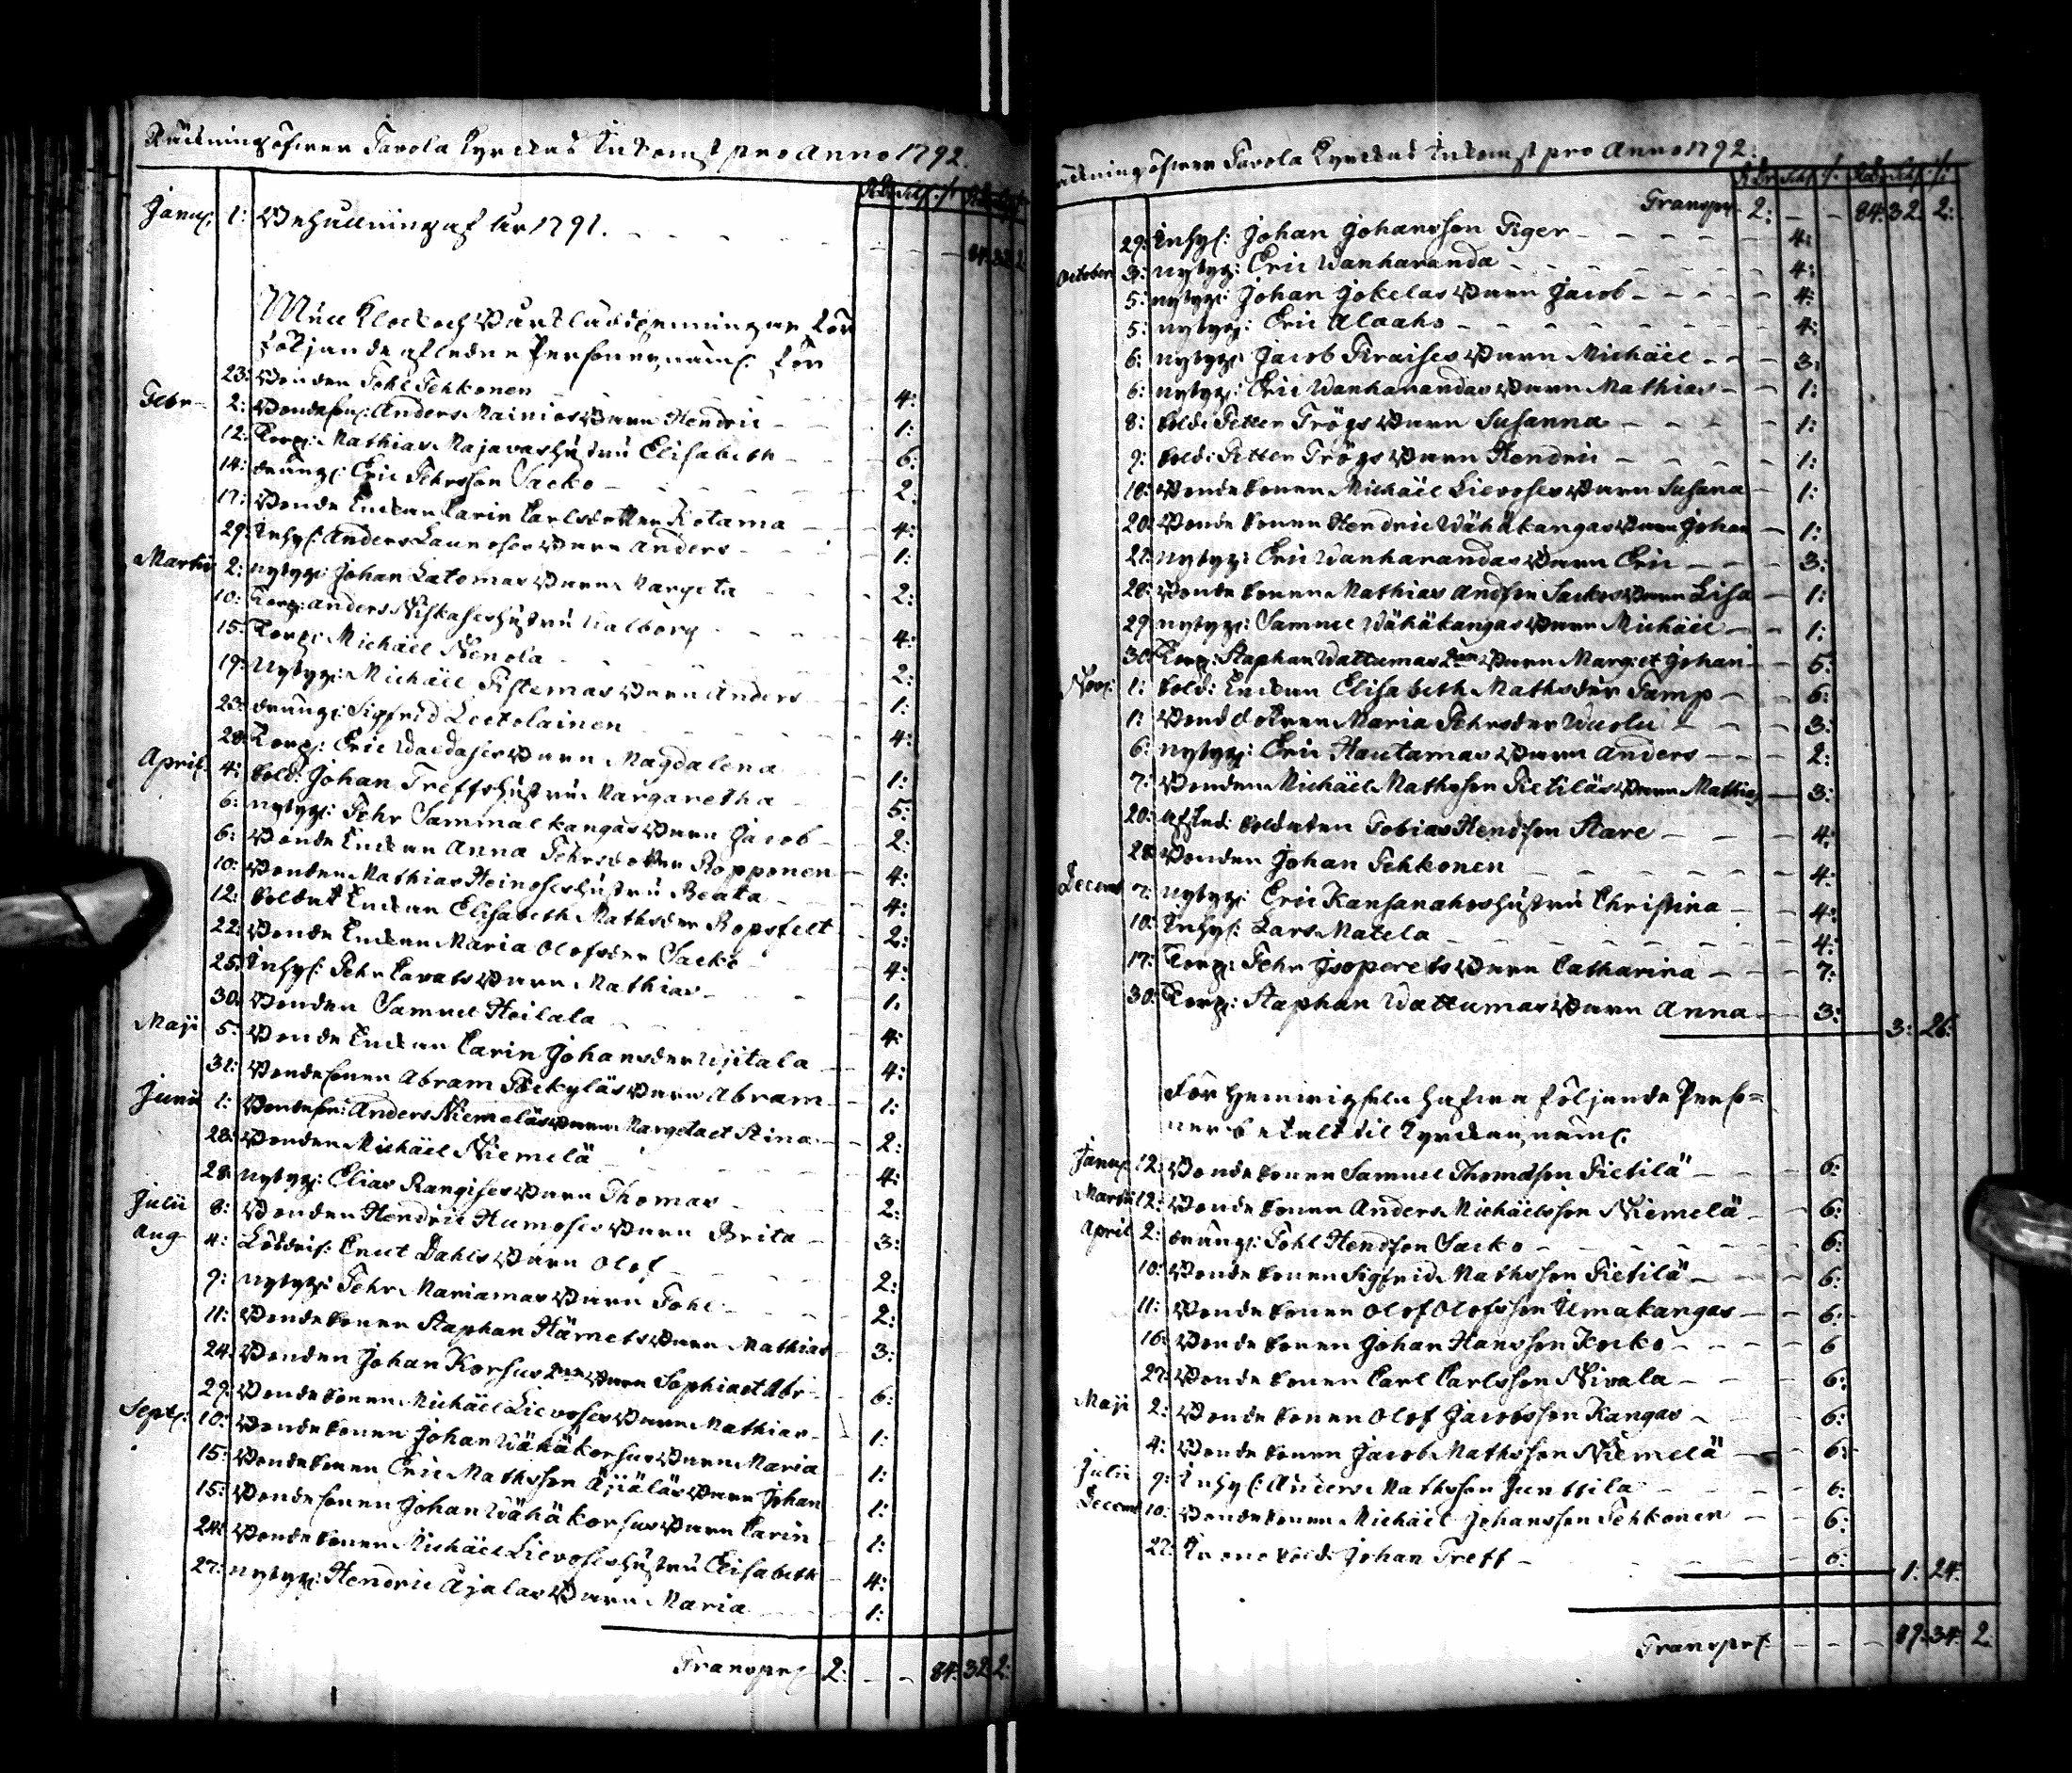 Räkning öfwer Pavola Kyrckas Inkomst pro Anno 1792.
Rdr Sch. /: Rdr Sch. /:
Janu: 1: Behållning af år 1791. – – – – – 84: 32: 2
Med Klock och Bårklädespenningar för
följande afledne Personer, näml: för
23: Bonden Pohl Pehkonen – 4:
Febr 2: Bondeson: Anders Mainios Barn Hendric – 1:
12: Torp: Mathias Majavas hustru Elisabeth – 6:
14: dräng: Eric Pehrsson Sacko – 2:
17: Bonde Enckan Carin Carlsdotter Kotama – 4:
29: Inhys: Anders Launoses Barn Anders – 1:
Martii 2: nybyg: Johan Latomas Barn Margeta – 2:
10: Torp: Anders Niskases hustru Walborg – 4:
15: Torp: Michael Nenola – 2:
19: Nybyg: Michäel Pistemas Barn Anders – 1:
23: dräng: Sigfrid Leetolainen – 4:
28: Torp: Eric Wacdases Barn Magdalena – 1:
April 4: Sold: Johan Treffs hustru Margaretha – 5:
6: nybyg: Pehr Sammalkangas Barn Jacob – 2:
6: Bonde Enckan Anna Pehrsdotter Ropponen – 4:
10: Bonden Mathias Heinoses hustru Beata – 4:
12: Soldat Enckan Elisabeth Mathsder Ropsfelt – 2:
22: Bonde Enckan Maria Olofsder Sacko – 4:
25: Inhys: Pehr Cavats Barn Mathias – 1.
30: Bonden Samuel Heilala – 4:
Maji 5: Bonde Enckan Carin Johansder Ujitala – 4:
31: Bondesonen Abram Päckyläs Barn Abram – 1:
Junii 1: Bondeson: Anders Niemeläs Barn Margeta et Stina – 2:
28: Bonden Michäel Niemelä – 4:
28: nybyg: Elias Kangises Barn Thomas – 2:
Julii 8: Bonden Hendric Humoses Barn Brita – 3:
Aug 4: Löddris: Cnut Dahls Barn Olof – 2:
9: nybyg: Pehr Mariamas Barn Pohl – 2:
11: Bondesonen Staphan Hämets Barn Mathias – 3:
24: Bonden Johan Korhus 2ne Barn Sophia et Abr – 6:
29: Bondesonen Michäel Lievoses Barn Mathias – 1:
Sept: 10: Bondesonen Johan Wähäkorhus Barn Maria – 1:
15: Bondesonen Eric Mathsson Äjäläs Barn Johan – 1:
15: Bondesonen Johan Wähäkorhus Barn Carin – 1:
24: Bondesonen Michäel Lievoses hustru Elisabeth – 4:
27: nybyg: Hendric Ajalas Barn Maria – 1:
Transprt 2: – – 84: 32: 2:
Räkning öfwer Pavola Kyrckas Inkomst pro Anno 1792.
Rdr Sch. /: Rdr Sch. /:
Transprt 2: – – 84: 32. 2:
29: Inhys: Johan Johansson Tiger – 4:
October 3: nybyg: Eric Wanharanda – 4:
5: nybyg: Johan Jokelas Barn Jacob – 4:
5: nybyg: Eric Alaaho – 4:
6: nybyg: Jacob Kraises Barn Michäel – 3:
6: nybyg: Eric Wanharandas Barn Mathias – 1:
8: Sold: Petter Trögs Barn Susanna – 1:
9: Sold: Petter Trögs Barn Hendric – 1:
18: Bondesonen Michäel Lievoses Barn Susana – 1:
20: Bondesonen Hendric Wähäkangas Barn Johan – 1:
21: nybyg: Eric Wanharandas Barn Eric – 3:
28: Bondesonen Mathias Andsson Sackos Barn Lisa – 1:
29: nybyg: Samuel Wähäkangas Barn Michäel – 1:
30: Torp: Staphan Wattumas 2ne Barn Marg: et Johan – 5:
Nov: 1: Sold: Enckan Elisabeth Mathsder Tamp – 6:
1: Bond dottren Maria Pehrsder Wuolu – 3:
6: nybyg: Eric Hautamas Barn Anders – 2:
7: Bonden Michäel Mathsson Pietiläs Barn Mathias – 3:
20: Afsked: Soldaten Tobias Hendsson Stare – 4:
28: Bonden Johan Pehkonen – 4:
Decemb 7: nybyg: Eric Kansanahos hustru Christina – 4:
10: Inhys: Lars Matela – 4:
17: Torp: Pehr Isoperets Barn Catharina – 7:
30: Torp: Staphan Wattumas Barn Anna – 3:
3: 26:
För Hemwigseln hafwa följande Perso=
ner betalt til Kyrckan, näml.
Janu: 12: Bondesonen Samuel Thomasson Pietilä – 6:
Martii 12: Bondesonen Anders Michäelsson Niemelä – 6:
April 2: dräng: Pohl Hendsson Sacko – 6:
10: Bondesonen Sigfrid Mathsson Pietilä – 6:
11: Bondesonen Olof Olofsson Ilmakangas – 6:
16: Bondesonen Johan Hansson Kocko – 6
27: Bondesonen Carl Carlsson Nivala – 6:
Maji 2: Bondesonen Olof Jacobsson Kangas – 6:
4: Bondesonen Jacob Mathsson Niemelä – 6:
Julii 9: Inhys: Anders Mathsson Junttila – 6:
Decemb 10: Bondesonen Michäel Johansson Pehkonen – 6:
27: Sold: Johan Treff – 6:
1: 24:
Transprt – – – 89: 34: 2: